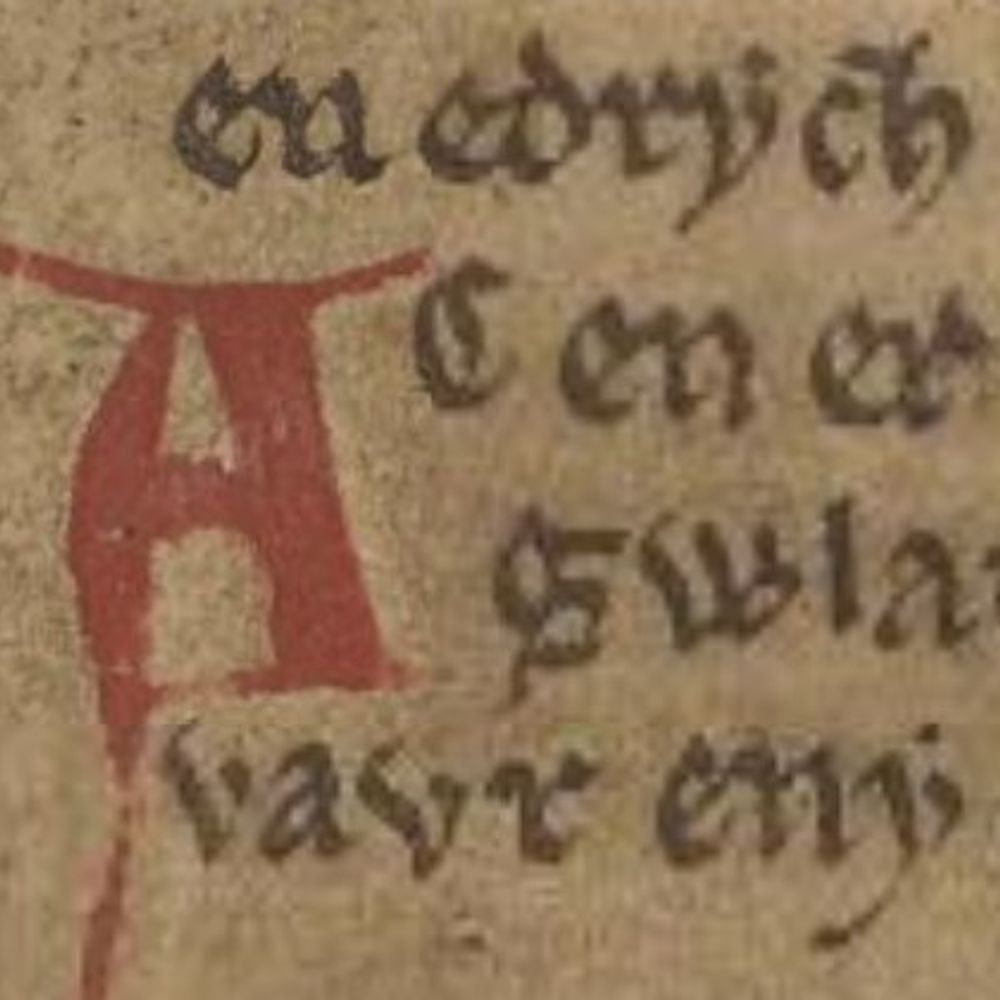 eu edrych
AC en er
gwla
vavr eny